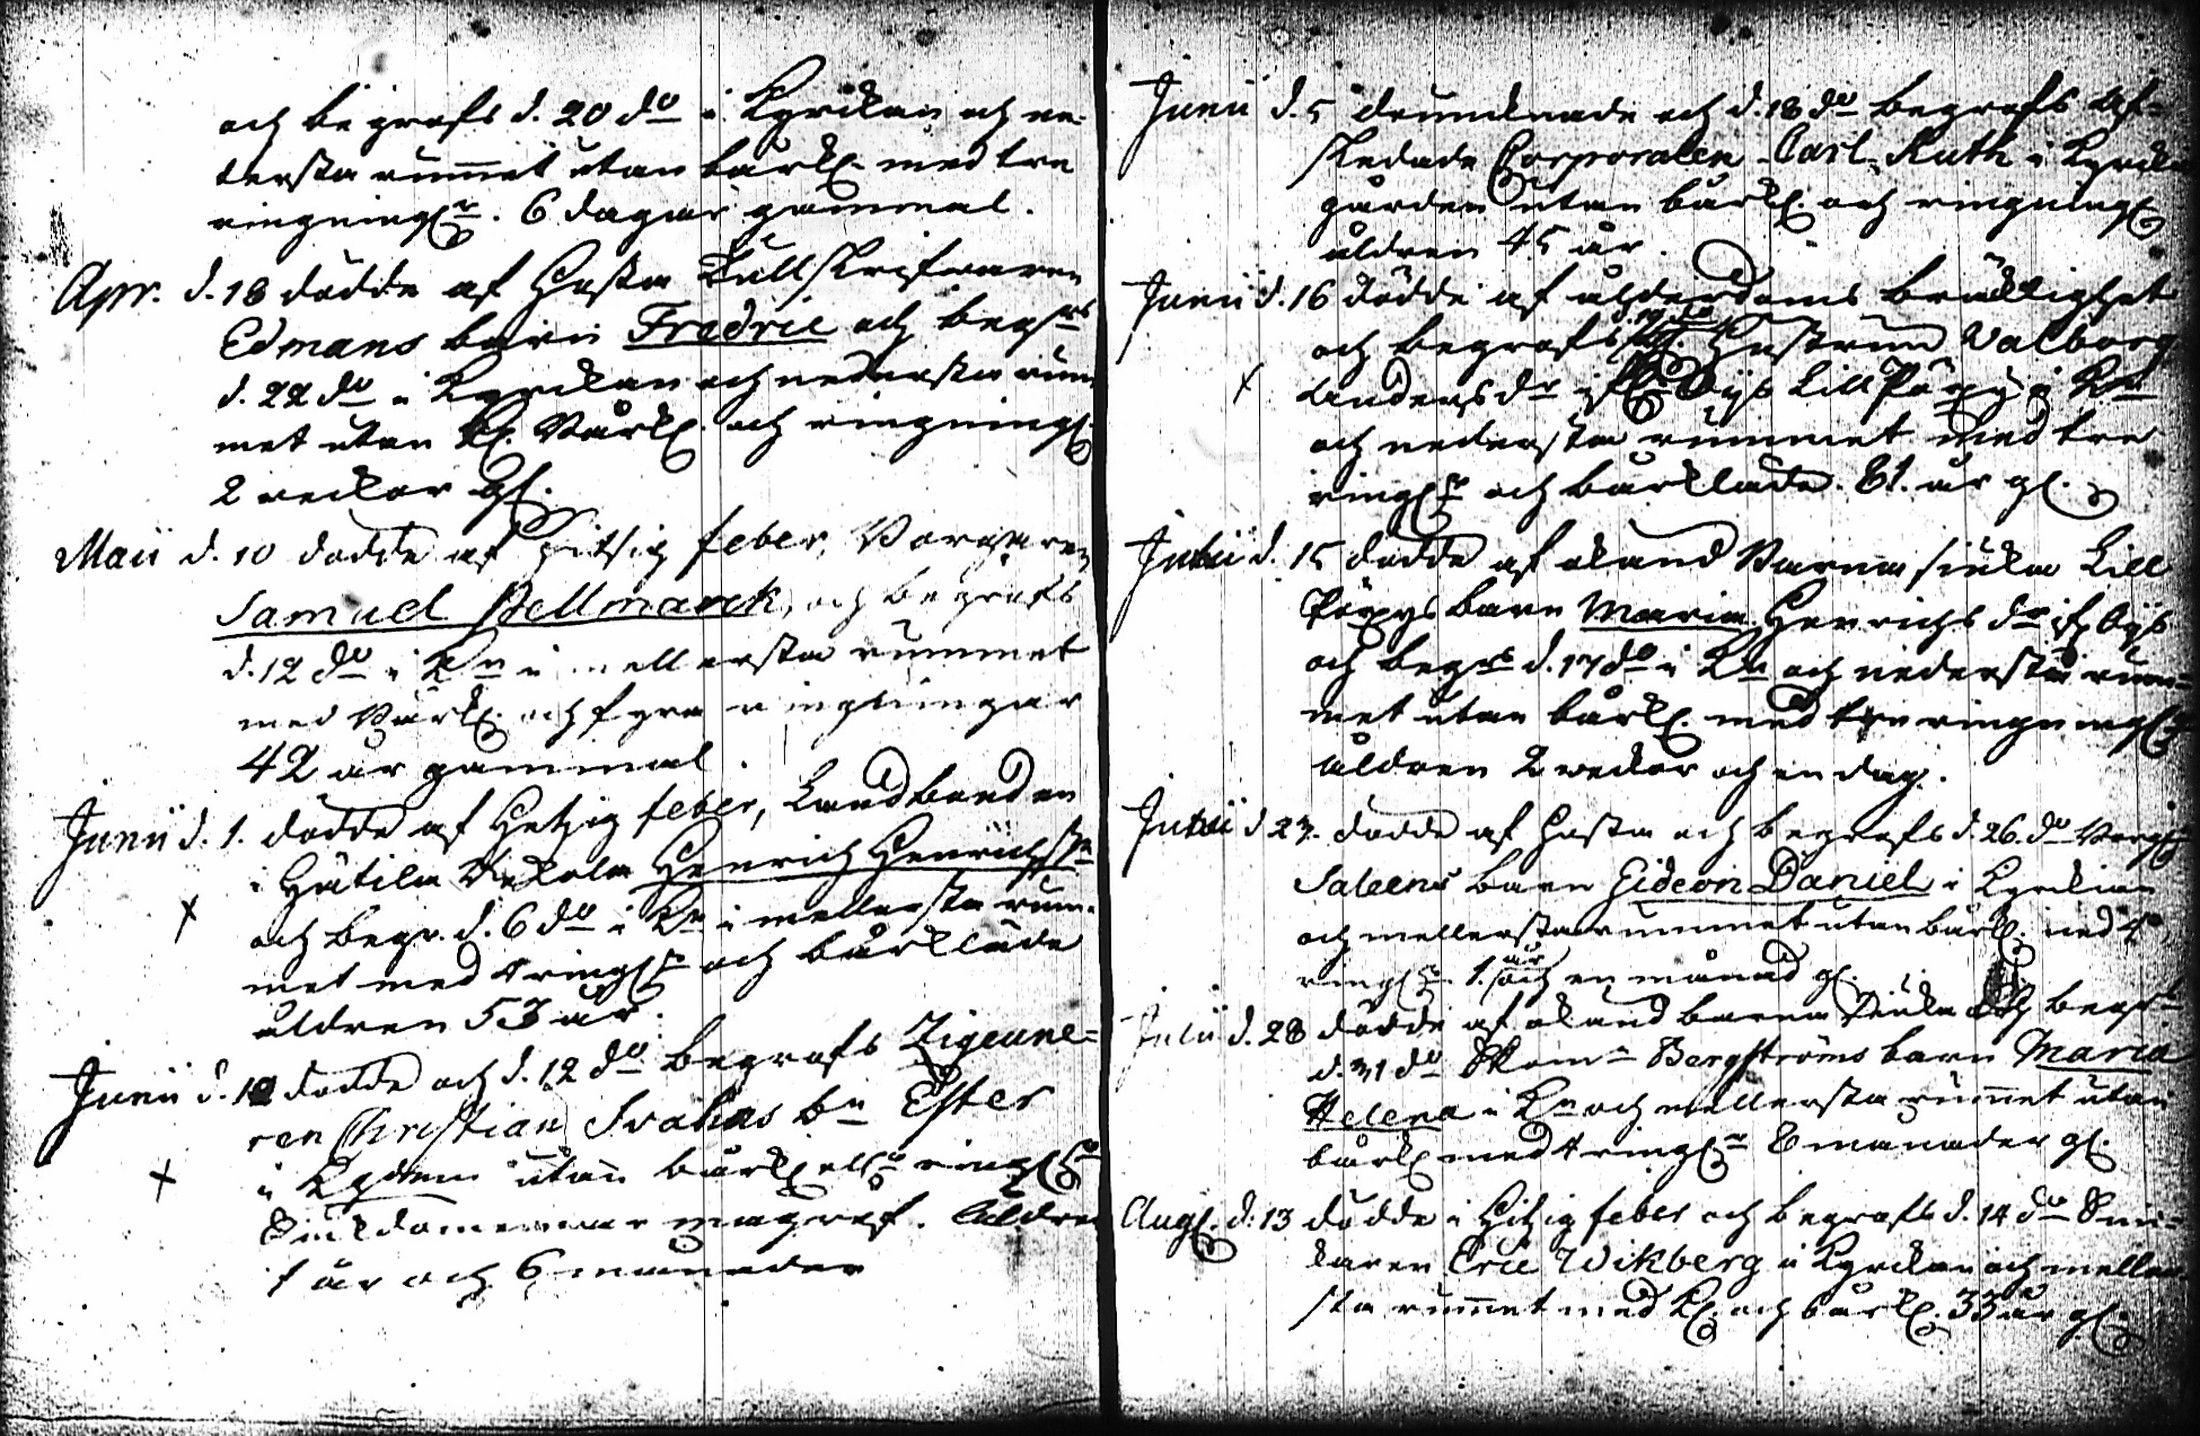 och begrofs d. 20 do i Kyrckan och ne-
dersta rummet utan bårkl. med tre
ringningr. 6 dagar gammal.
Apr. d. 18 dödde af Hosta Tullskrifwaren
Edmans barn Fredric och begrs
d. 22 do i Kyrckan och nedersta rum
met utan Kl. Bårkl. och ringning
2 veckor gl.
Maii d. 10 dödde af Hitsig feber, Borgaren
Samuel Pellmarck, och begrafs
d. 12 do i Kn i mellersta rummet
med Bårkl. och fyra ringningar
42 år gammal.
Junii d. 1. dödde af Hetzig feber, Landbonden
i Hätila Henrich Henrichssn
och begr. d. 6 do i Kn i mellersta rum-
met med 4 ringr och bårkläde
åldren 53 år.
Junii d. 10 dödde och d. 12 do begrofs Zigeune-
ren Christian Svahns bn Ester
i utan bårkl. ellr ringr
Siukdomen war Åldren
1 år och 6 månader
Junii d. 5 drunknade och d. 18 do begrofs Af-
skedade Corporalen Carl Ruth i Kyrcko
gården utan bårkl. och ringning
åldren 45 år.
Junii d. 16 dödde af ålderdoms bräcklighet
och begrofs d. 19 do Hustrun Valborg
Andersdr ifr. Öijs Lill Pörry i Kn
och nedersta rummet med tre
ringr och bårkläde. 81. år gl.
Julii d. 15 dödde af okänd Barna siuka Lill
Pörrys barn Maria Henrichs dr ifr Öijs
och begrs d. 17 do i Kn och nedersta rum-
met utan bårkl. med tre ringningr
åldren 2 weckor och en dag.
Julii d 23. dödde af Hosta och begrofs d. 26. do Borg.
Saleens barn Gideon Daniel i Kyrckian
och mellersta rummet utan bårkl. med 4
ringr. 1. år och en månad gl.
Julii d. 28 dödde af okänd barna Siuka och begrs
d. 31 do Skom. Bergströms barn Maria
Helena i Kn och mellersta rummet utan
bårkl. med 4 ringr 8 månader gl.
Aug. d. 13 dödde i Hitzig feber och begrofs d. 14 do Sni-
karen Eric Wikberg i Kyrckan och meller-
sta rummet med Kl. och bårkl. 33 år gl.